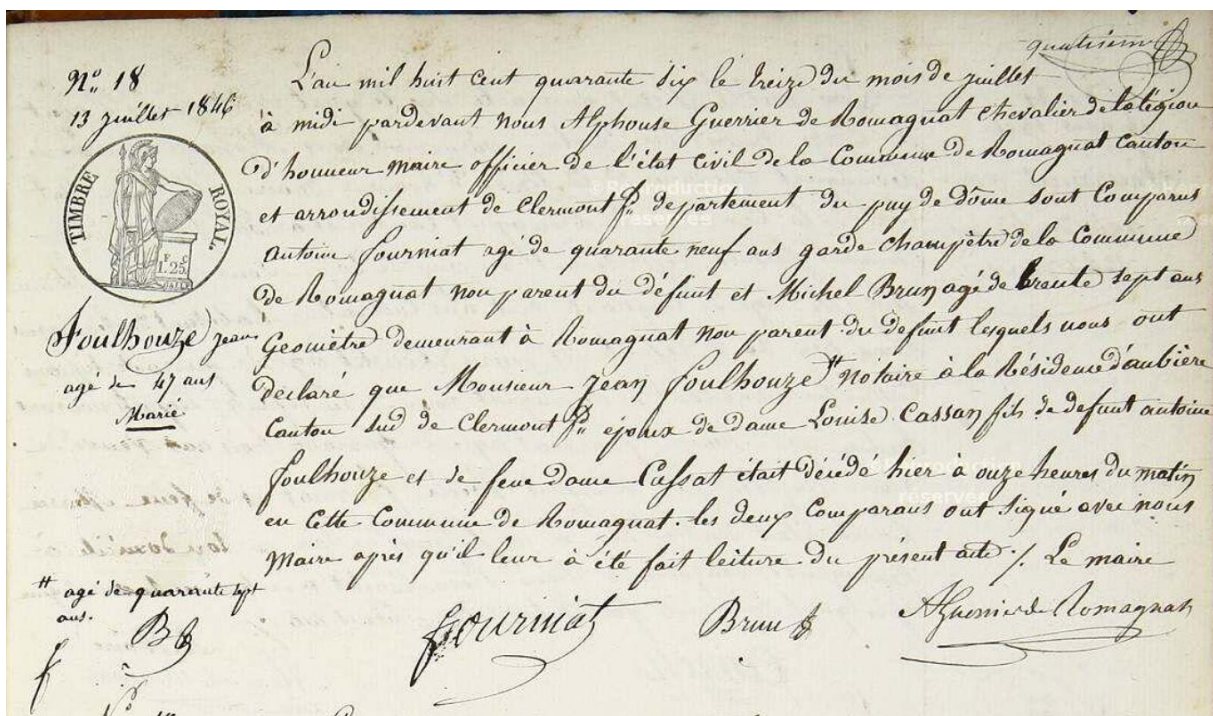 quatrième
N° 18
13 juillet 1846
TIMBRE ROYAL
F C
1.25
Foulhouze jean
agé de 47 ans
Marié
L'an mil huit cent quarante six le treize du mois de juillet
à midi pardevant nous Alphonse Guerrier de Romagnat Chevalier de la légion
d'honneur maire officier de l'état civil de la Commune de Romagnat Canton
et arrondissement de Clermont fd departement du puy de dôme sont Comparus
Antoine fourniat agé de quarante neuf ans garde champêtre de la Commune
de Romagnat non parent du défunt et Michel Brun agé de trente sept ans
Geomètre demeurant à Romagnat non parent du defunt lesquels nous ont
declaré que Monsieur Jean foulhouze # notaire à la Résidence d'aubière
Canton sud de Clermont fd époux de dame Louise Cassan fils de defunt antoine
foulhouze et de feue dame Cussat était décédé hier à onze heures du matin
en Cette Commune de Romagnat. les deux Comparans ont signé avec nous
Maire après qu'il leur à été fait lecture du présent acte ./. Le maire
# agé de quarante sept
ans.
B
fourniat
Brun
AGuerrier de Romagnat